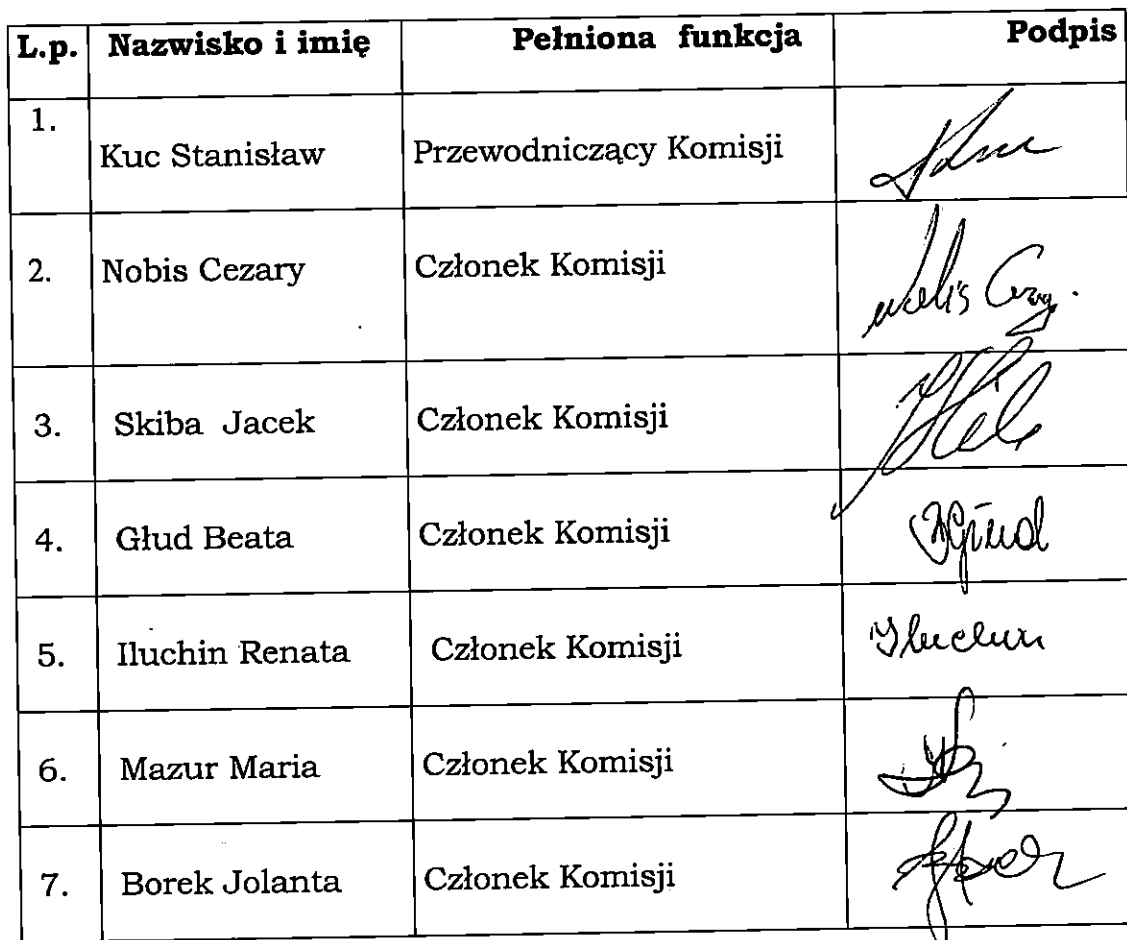 L.p. Nazwisko i imię Pełniona funkcja Podpis
1. Kuc Stanisław Przewodniczący Komisji
2. Nobis Cezary Członek Komisji
3. Skiba Jacek Członek Komisji
4. Głud Beata Członek Komisji
5. Iluchin Renata Członek Komisji Iluchin
6. Mazur Maria Członek Komisji
7. Borek Jolanta Członek Komisji